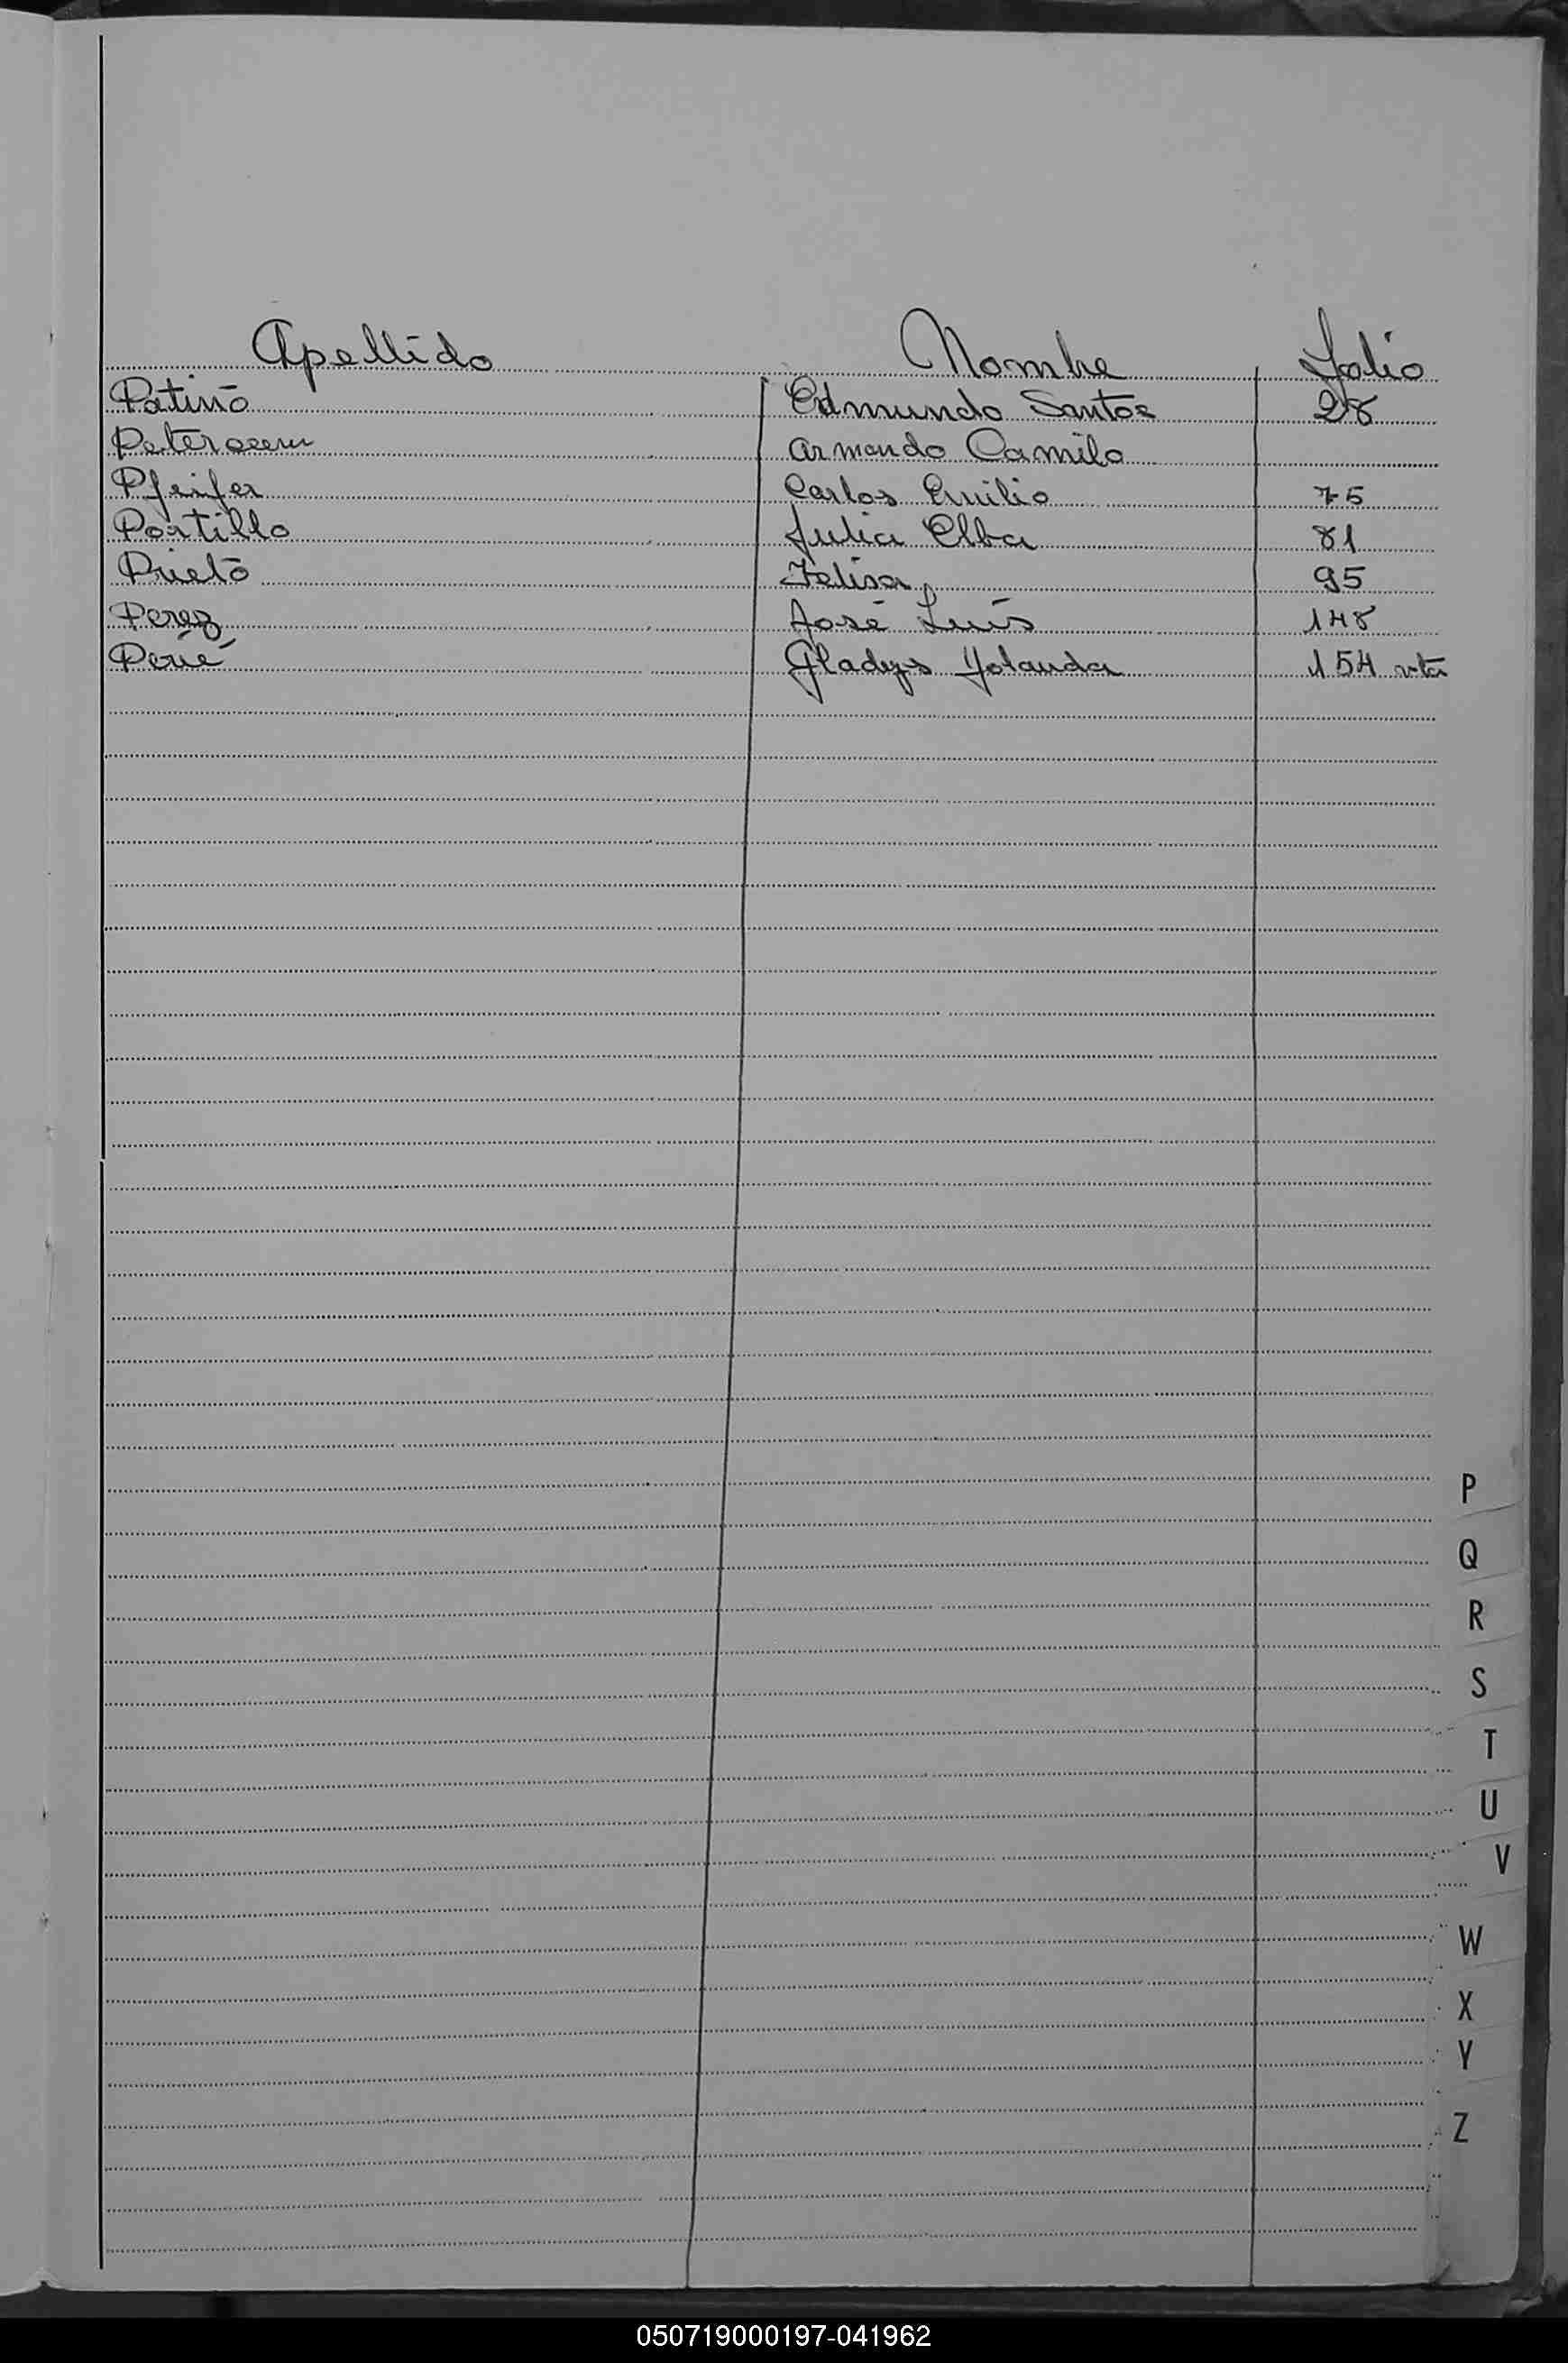 Apellido Nombre Folio
Patiño Edmundo Santos 28
Armando Camilo
Pfeifer Carlos Emilio 75
Portillo Julia Elba 81
Prieto Felisa 95
Perez José Luis 148
Perié Gladys Yolanda 154 vta
P
Q
R
S
T
U
V
W
X
Y
Z
050719000197-041962